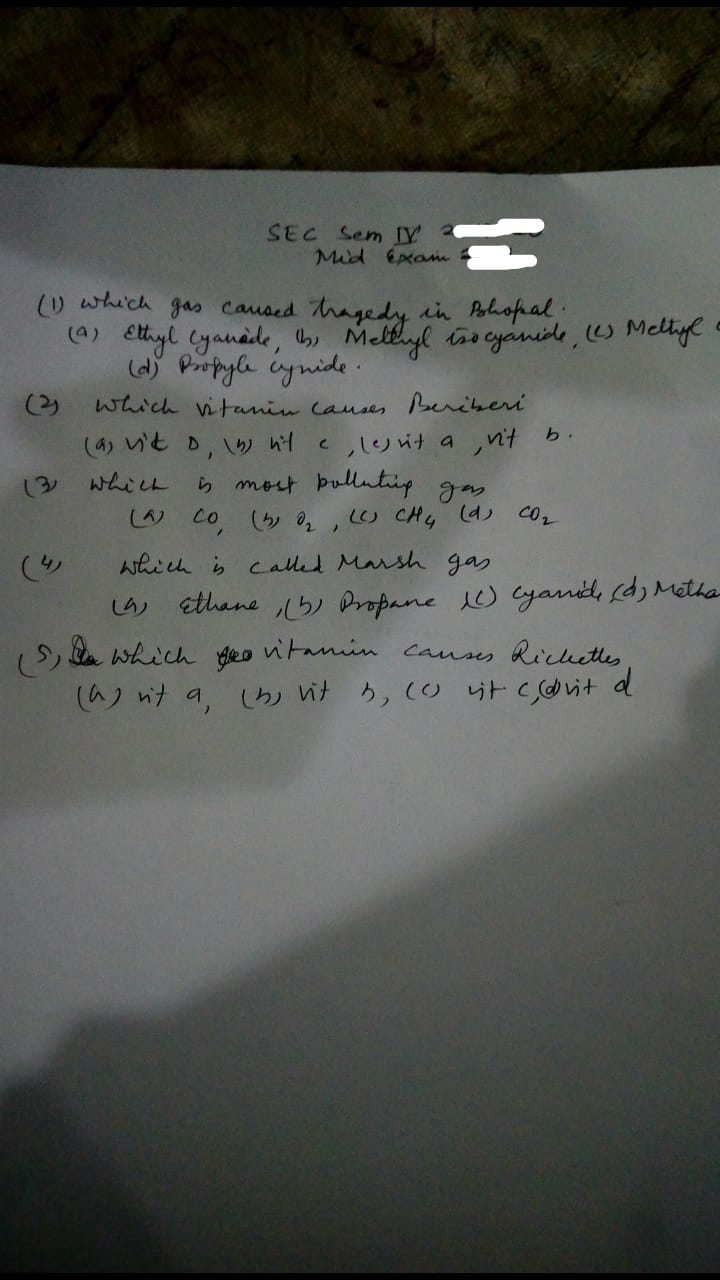 SEC Sem IV
Mid Exam
(1) which gas caused tragedy in Bhopal.
(a) Ethyl Cyanide, (b) Methyl isocyanide, (c) Methyl
(d) Propyle cynide.
(2) which vitamin causes Beriberi
(a) vit D, (b) vit c, (c) vit a, vit b.
(3) which is most polluting gas
(a) CO, (b) O2, (c) CH4 (d) CO2
(4) which is called Marsh gas
(a) Ethane, (b) Propane (c) Cyanide, (d) Metha
(5) which vitamin causes Rickettes
(a) vit a, (b) vit b, (c) vit c, (d) vit d